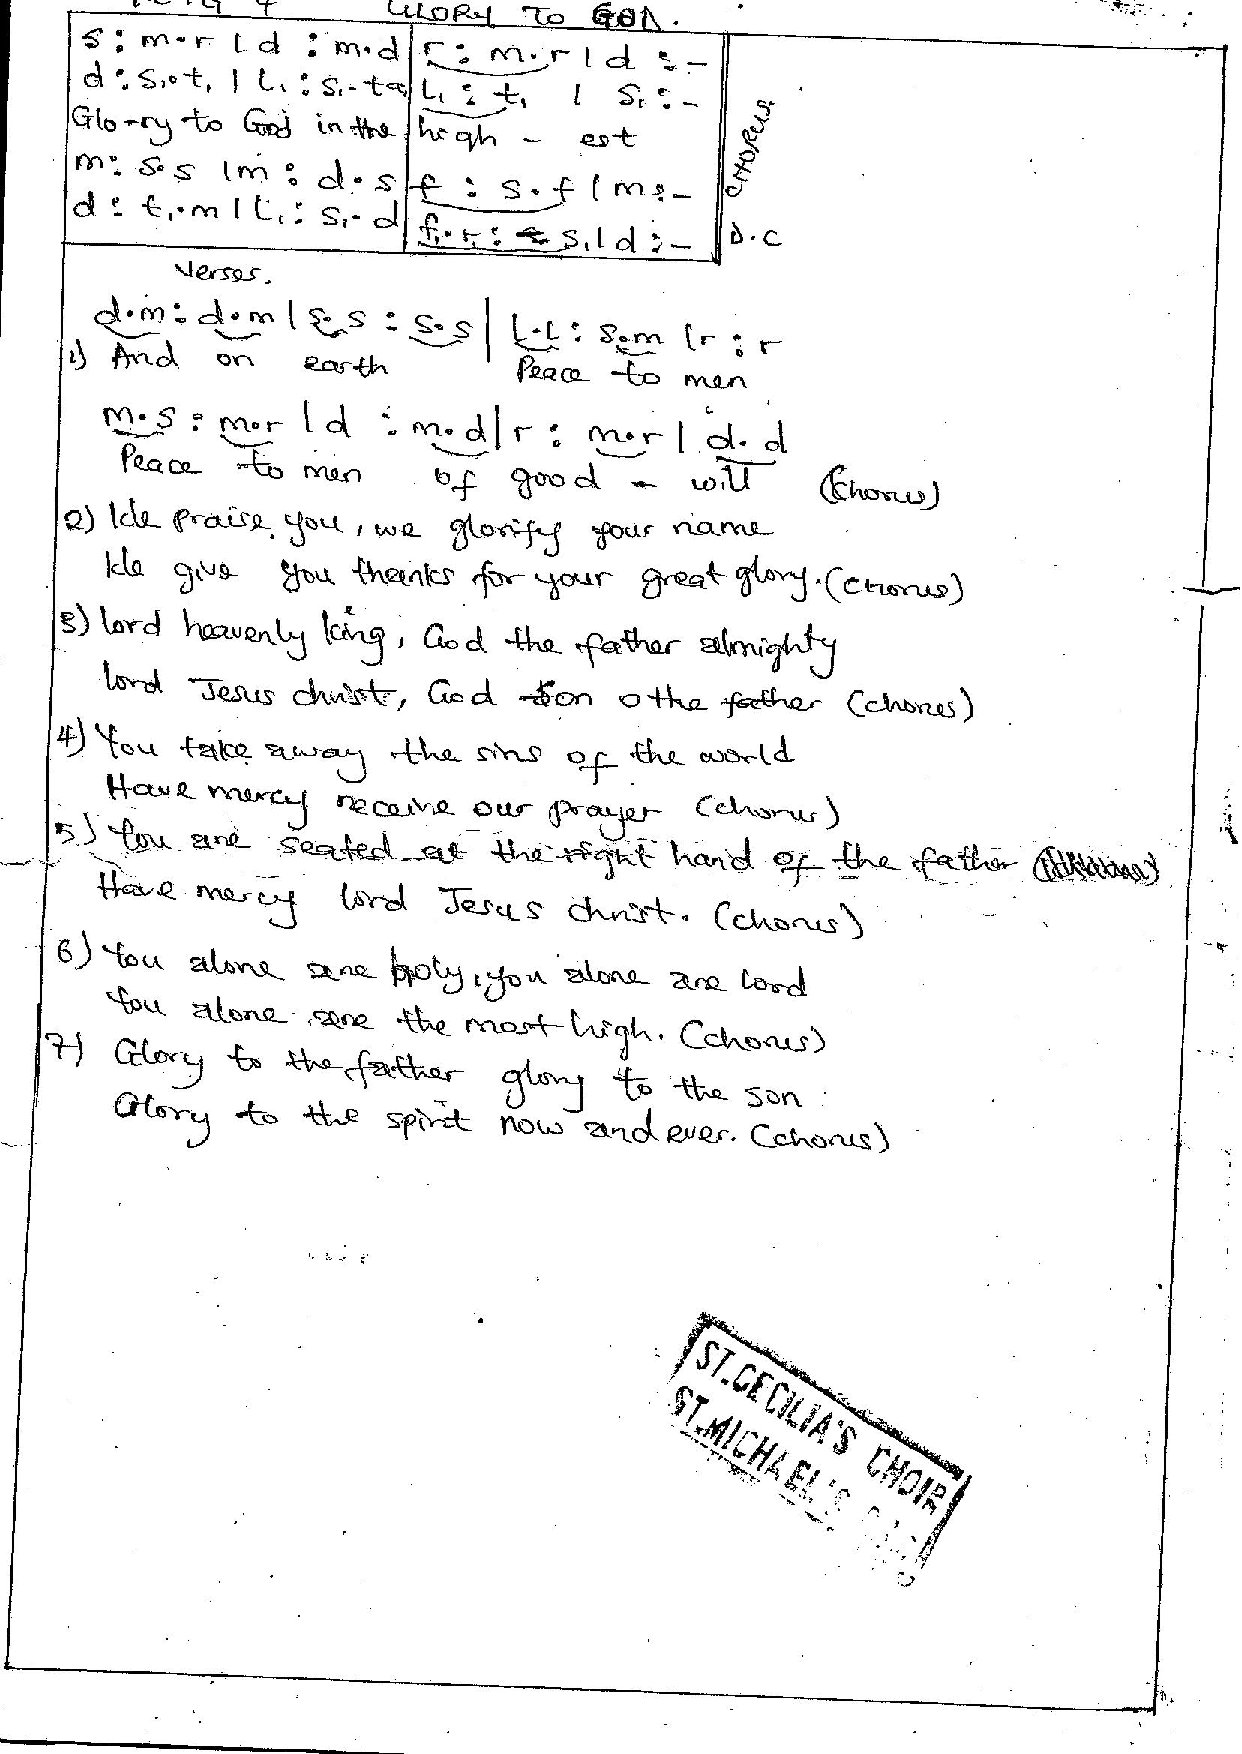 GLORY TO GOD.
s : m.r | d : m.d | r : m.r | d : -
d : s₁.t₁ | l₁ : s₁.ta₁ | l₁ : t₁ | s₁ : -
Glo-ry to God in the high - est
m : s.s | m : d.s | f : s.f | m : -
d : t₁.m | l₁ : s₁.d | f₁.r₁ : s₁ | d : -
CHORUS.
D.C
Verses.
d.m : d.m | s.s : s.s | l.l : s.m | r : r
1) And on earth Peace to men
m.s : m.r | d : m.d | r : m.r | d.d
Peace to men of good - will (Chorus)
2) We praise you, we glorify your name
We give you thanks for your great glory. (Chorus)
3) lord heavenly king, God the father almighty
lord Jesus christ, God son o the father (chorus)
4) You take away the sins of the world
Have mercy receive our prayer (chorus)
5) You are seated at the right hand of the father
Have mercy lord Jesus christ. (chorus)
6) You alone are holy, you alone are lord
You alone are the most high. (chorus)
7) Glory to the father glory to the son
Glory to the spirit now and ever. (chorus)
ST.CECILIA'S CHOIR
ST.MICHAEL'S